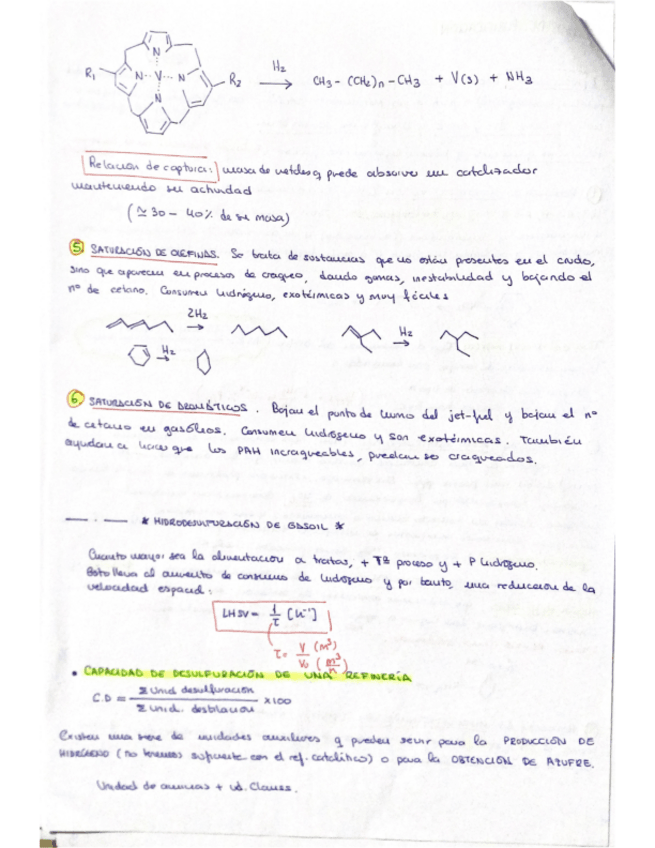 R1 N N V N N R2 H2 → CH3 - (CH2)n - CH3 + V(s) + NH3
Relación de captura: masa de metales q puede absorver un catalizador
manteniendo su actividad
(≃ 30 - 40% de su masa)
5. SATURACIÓN DE OLEFINAS. Se trata de sustancias que no están presentes en el crudo,
sino que aparecen en procesos de craqueo, dando gomas, inestabilidad y bajando el
nº de cetano. Consumen hidrógeno, exotérmicas y muy fáciles
2H2 → H2 →
H2 →
6. SATURACIÓN DE AROMÁTICOS. Bajan el punto de humo del jet-fuel y bajan el nº
de cetano en gasóleos. Consumen hidrógeno y son exotérmicas. También
ayudan a hacer que los PAH incraqueables, puedan ser craqueados.
* HIDRODESULFURACIÓN DE GASOIL *
Cuanto mayor sea la alimentación a tratar, + Tª proceso y + P hidrógeno.
Esto lleva al aumento de consumo de hidrógeno y por tanto, una reducción de la
velocidad espacial:
LHSV = 1/τ [h⁻¹]
τ = V (m³) / V₀ (m³/h)
• CAPACIDAD DE DESULFURACIÓN DE UNA REFINERÍA
C.D = Σ Unid. desulfuración / Σ unid. destilación x100
Existen una serie de unidades auxiliares q pueden servir para la PRODUCCIÓN DE
HIDRÓGENO (no tenemos suficiente con el ref. catalítico) o para la OBTENCIÓN DE AZUFRE.
Unidad de aminas + ud. Clauss.